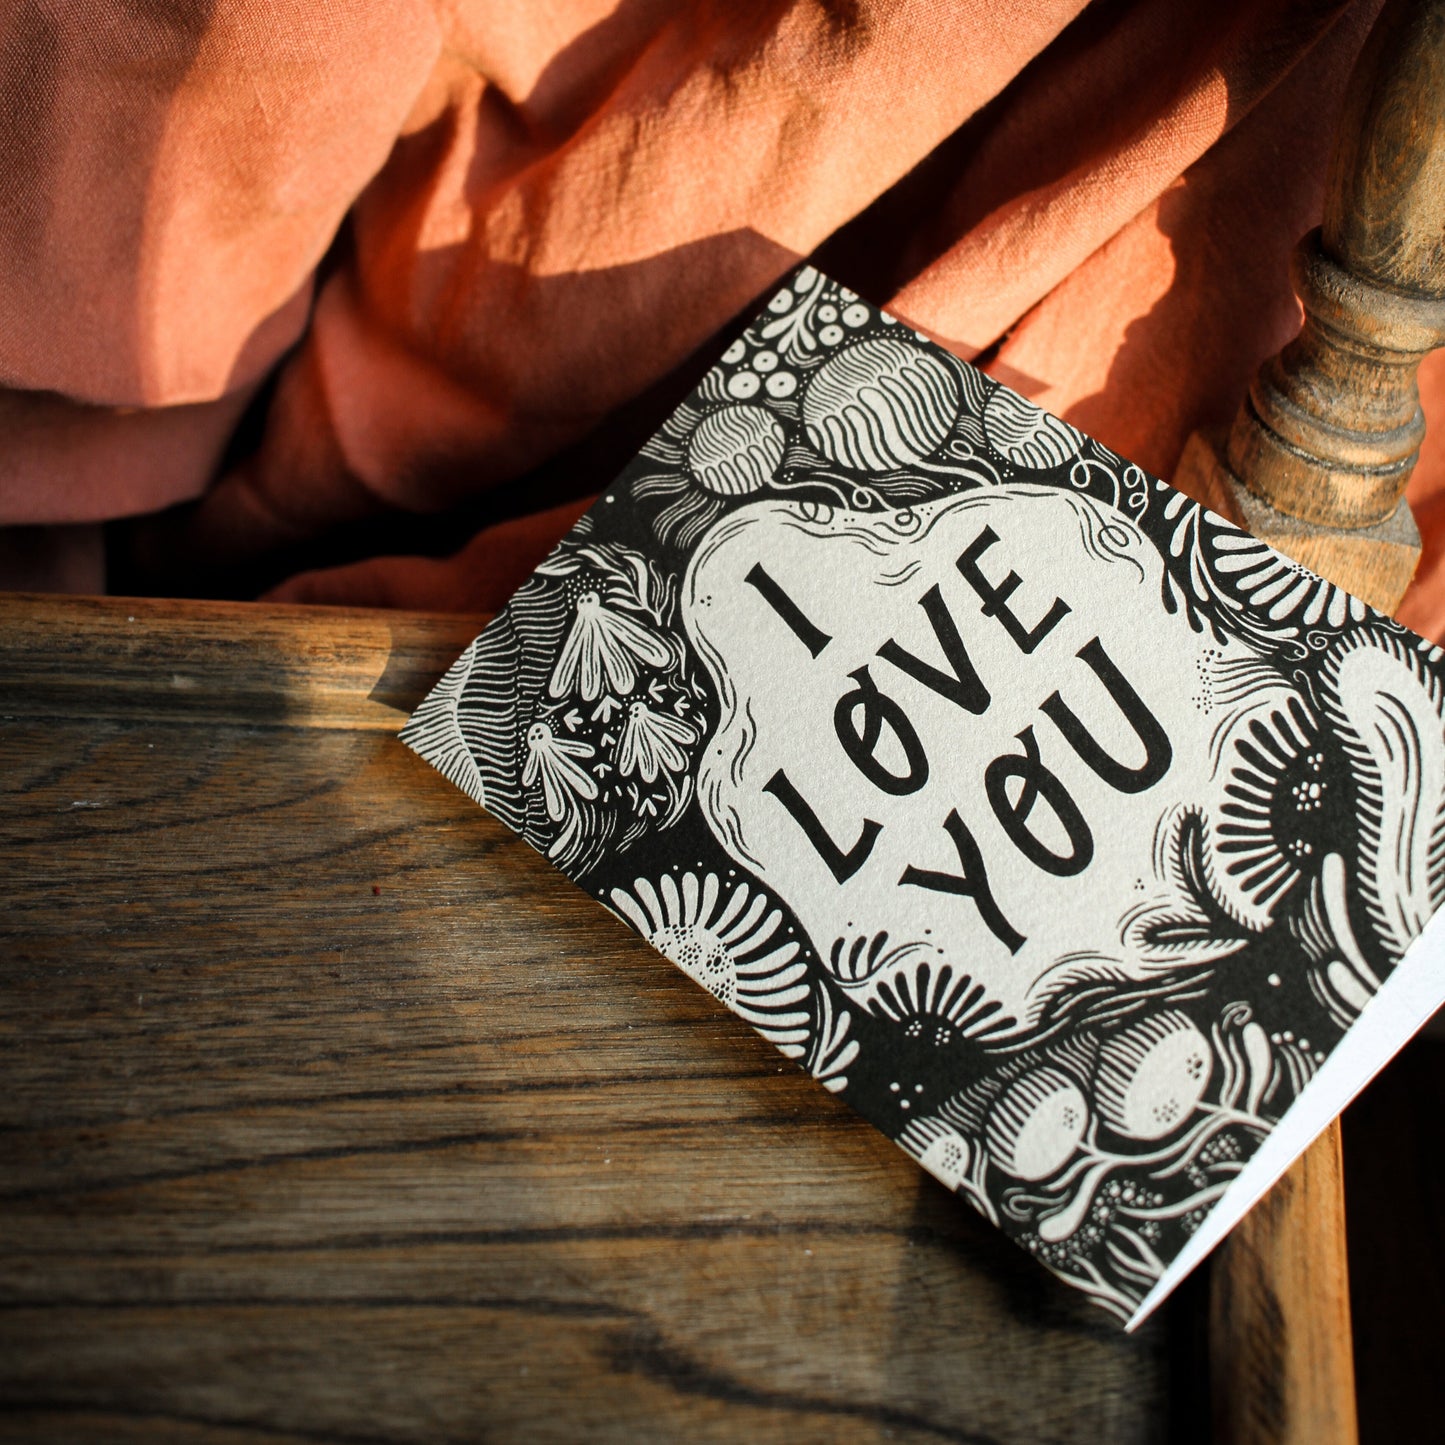 I
LØVE
YØU